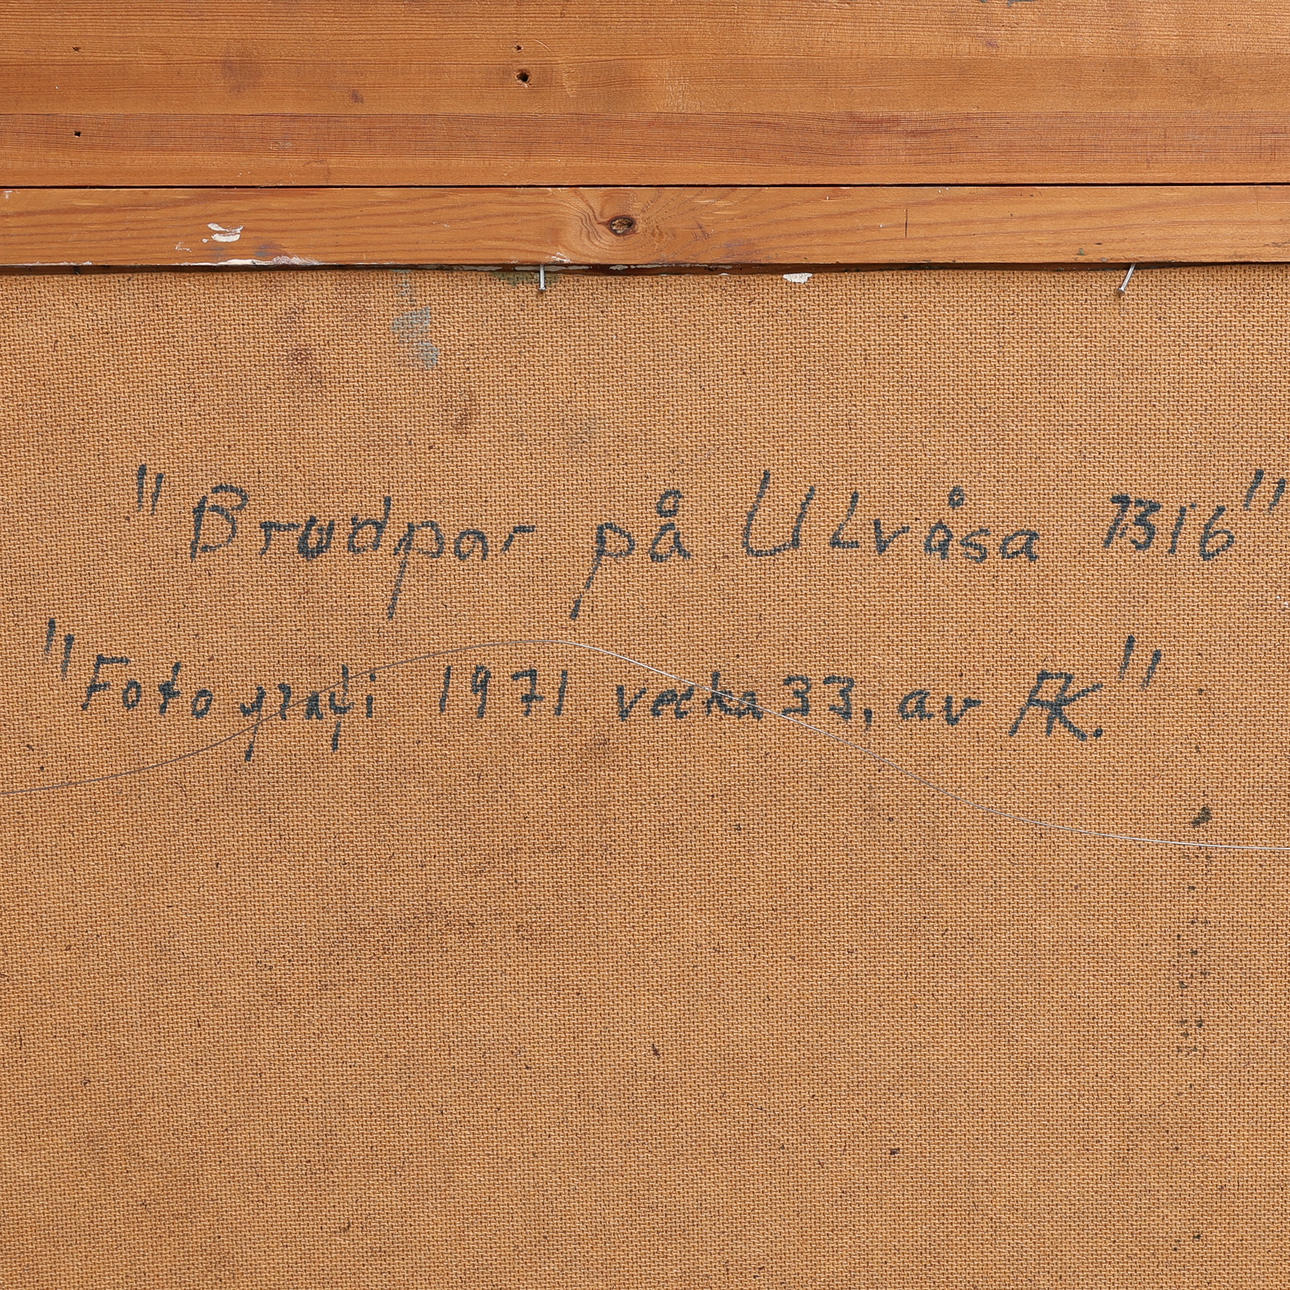 "Brudpar på Ulvåsa 1316"
"Fotografi 1971 vecka 33, av AK."